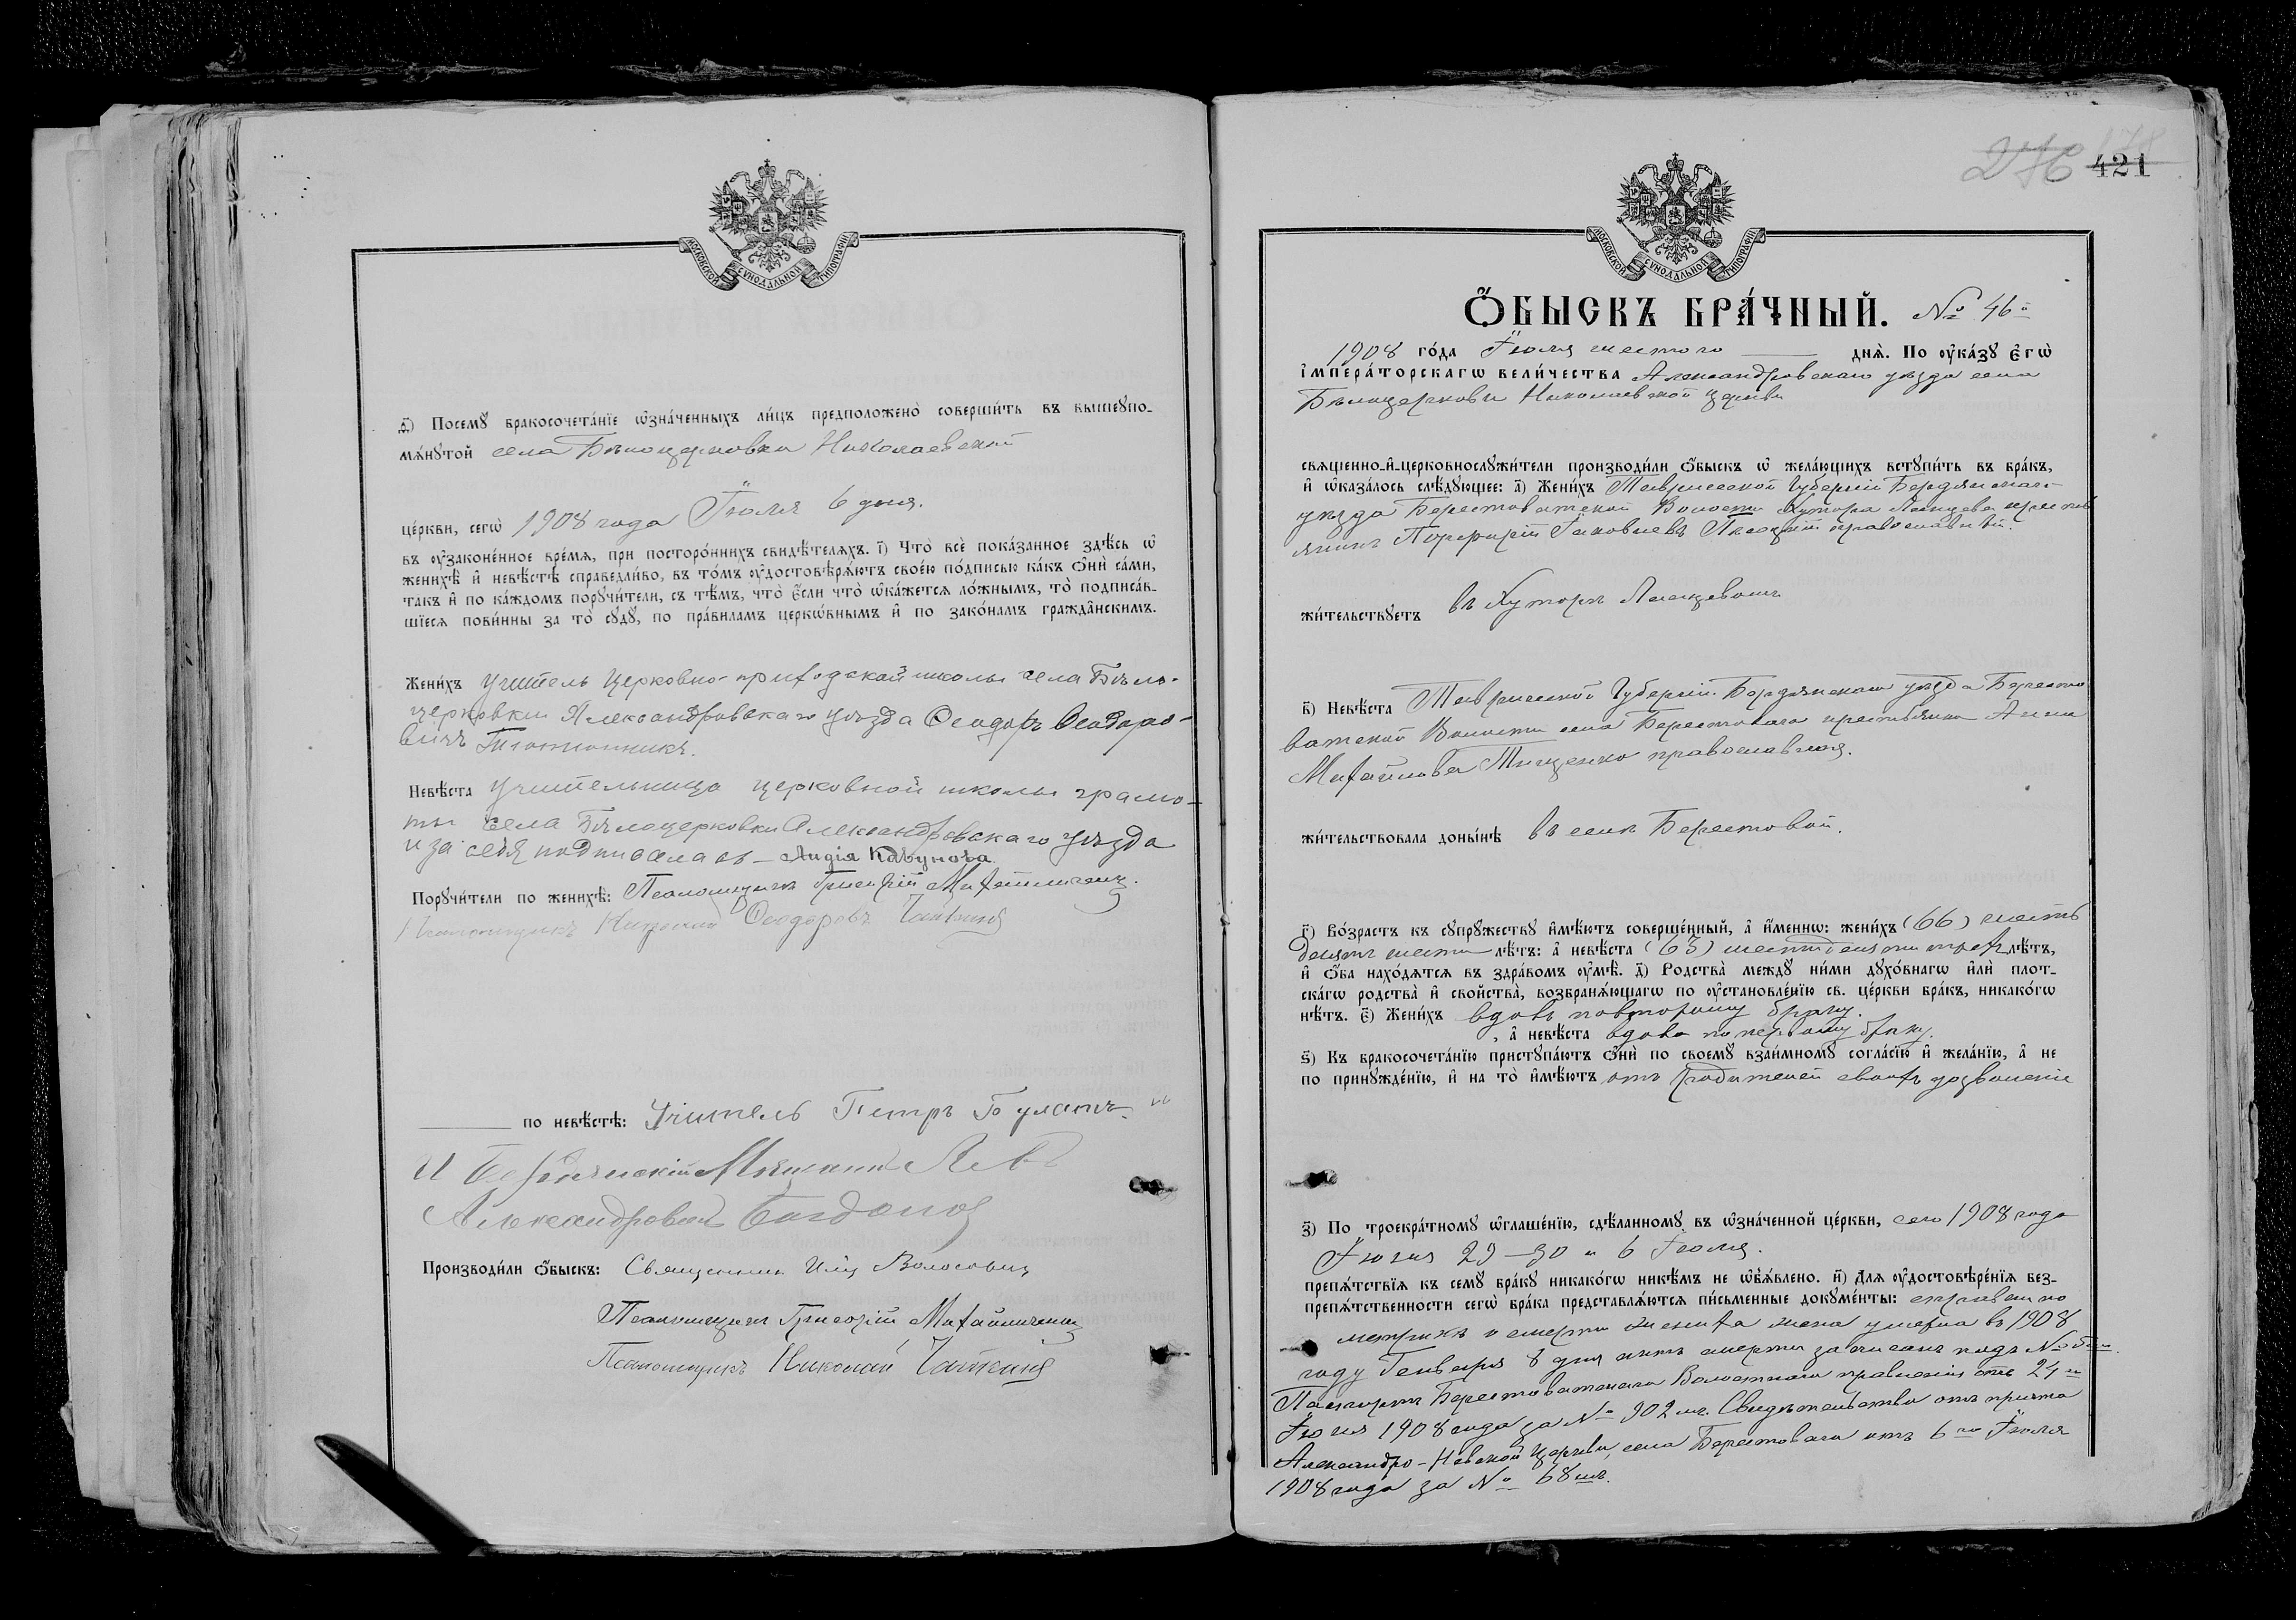 МОСКОВСКОЙ СѴНОДАЛЬНОЙ ТИПОГРАФІИ
д҃і) Посемꙋ бракосочета́нїе ѡ҆зна́ченныхъ ли́цъ предположено̀ соверши́ть въ вышеꙋпо-
мѧ́нꙋтой села Бѣлоцерковки Николаевской
це́ркви, сегѡ̀ 1908 года Іюля 6 дня.
въ ᲂу҆зако́ненное вре́мѧ, при посторо́ннихъ свидѣ́телѧхъ. і҃) Что̀ всѐ пока́занное здѣ́сь ѡ҆
женихѣ̀ и҆ невѣ́стѣ справедли́во, въ то́мъ ᲂу҆достовѣрѧ́ютъ свое́ю по́дписью ка́къ ѻ҆нѝ са́ми,
та́къ и҆ по ка́ждомъ порꙋчи́тели, съ тѣ́мъ, что̀ є҆́сли что̀ ѡ҆ка́жетсѧ ло́жнымъ, то̀ подписа́в-
шїесѧ пови́нны за то̀ сꙋдꙋ̀, по пра́виламъ церкѡ́внымъ и҆ по зако́намъ гражда́нскимъ.
Жени́хъ Учитель Церковно-приходской школы села Бѣло-
церковки Александровскаго уѣзда Ѳеодоръ Ѳеодоро-
вичъ
Невѣ́ста Учительница церковной школы грамо-
ты села Бѣлоцерковки Александровскаго уѣзда
и за себя подписалась – Лидія Кавунова
Порꙋчи́тели по женихѣ̀: Псаломщикъ Григорій Михайличенко.
Псаломщикъ Николай Ѳеодоровъ Чайкинъ
по невѣ́стѣ: Учитель Петръ Булатъ
и Бердянскій Мѣщанинъ Левъ
Александровъ
Производи́ли ѻ҆́быскъ: Священникъ Илія Волосовичъ
Псаломщикъ Григорій Михайличенко
Псаломщикъ Николай Чайкинъ
276
421
МОСКОВСКОЙ СѴНОДАЛЬНОЙ ТИПОГРАФІИ
Ѻ҆БЫСКЪ БРА́ЧНЫЙ. № 46й
1908 го́да Іюля шестого днѧ̀. По ᲂу҆ка́зꙋ є҆гѡ̀
і҆мпера́торскагѡ вели́чества Александровскаго уѣзда села
Бѣлоцерковки Николаевской Церкви
свѧще́нно-и҆-церковнослꙋжи́тели производи́ли ѻ҆́быскъ ѡ҆ жела́ющихъ встꙋпи́ть въ бра́къ,
и҆ ѡ҆каза́лось слѣ́дꙋющее: а҃) Жени́хъ Таврической Губерніи Бердянскаго
уѣзда Берестоватской Волости Хутора крестья-
нинъ Порфирій Іаковлевъ православный.
жи́тельствꙋетъ въ Хуторѣ
в҃) Невѣ́ста Таврической Губерніи Бердянскаго уѣзда Бересто-
ватской Волости села Берестоваго крестьянка Анна
Михайлова Тищенко православная.
жи́тельствовала доны́нѣ въ селѣ Берестовой.
г҃) Во́зрастъ къ сꙋпрꙋ́жествꙋ и҆мѣ́ютъ соверше́нный, а҆ и҆́меннѡ: жени́хъ (66) шесть
десятъ шести лѣ́тъ: а҆ невѣ́ста (63) шестидесяти трехъ лѣ́тъ,
и҆ ѻ҆́ба нахо́дѧтсѧ въ здра́вомъ ᲂу҆мѣ̀. д҃) Родства̀ междꙋ ни́ми дꙋхо́внагѡ и҆лѝ плот-
ска́гѡ родства̀ и҆ свойства̀, возбранѧ́ющагѡ по ᲂу҆становле́нїю св. це́ркви бра́къ, никако́гѡ
нѣ́тъ. є҃) Жени́хъ вдовъ по второму браку.
, а҆ невѣ́ста вдова по первому браку.
ѕ҃) Къ бракосочета́нїю пристꙋпа́ютъ ѻ҆нѝ по своемꙋ̀ взаи́мномꙋ согла́сїю и҆ жела́нїю, а҆ не
по принꙋжде́нїю, и҆ на то̀ и҆мѣ́ютъ отъ родителей своихъ дозволеніе
з҃) По троекра́тномꙋ ѡ҆глаше́нїю, сдѣ́ланномꙋ въ ѡ҆зна́ченной це́ркви, сего 1908 года
Іюня 29–30 и 6 Іюля.
препѧ́тствїѧ къ семꙋ̀ бра́кꙋ никако́гѡ никѣ́мъ не ѡ҆б̾ѧ́влено. и҃) Длѧ ᲂу҆достовѣре́нїѧ без-
препѧ́тственности сегѡ̀ бра́ка представлѧ́ютсѧ пи́сьменные докꙋме́нты: справка по
метрикѣ о смерти жениха жена умерла въ 1908
году Генваря 8 дня актъ смерти записанъ подъ №
Паспортъ Берестоватскаго Волостнаго правленія отъ 24го
Іюня 1908 года за № 902 мъ. Свидѣтельство отъ причта
Александро-Невской Церкви, села Берестоваго отъ 6го Іюля
1908 года за № 68мъ.